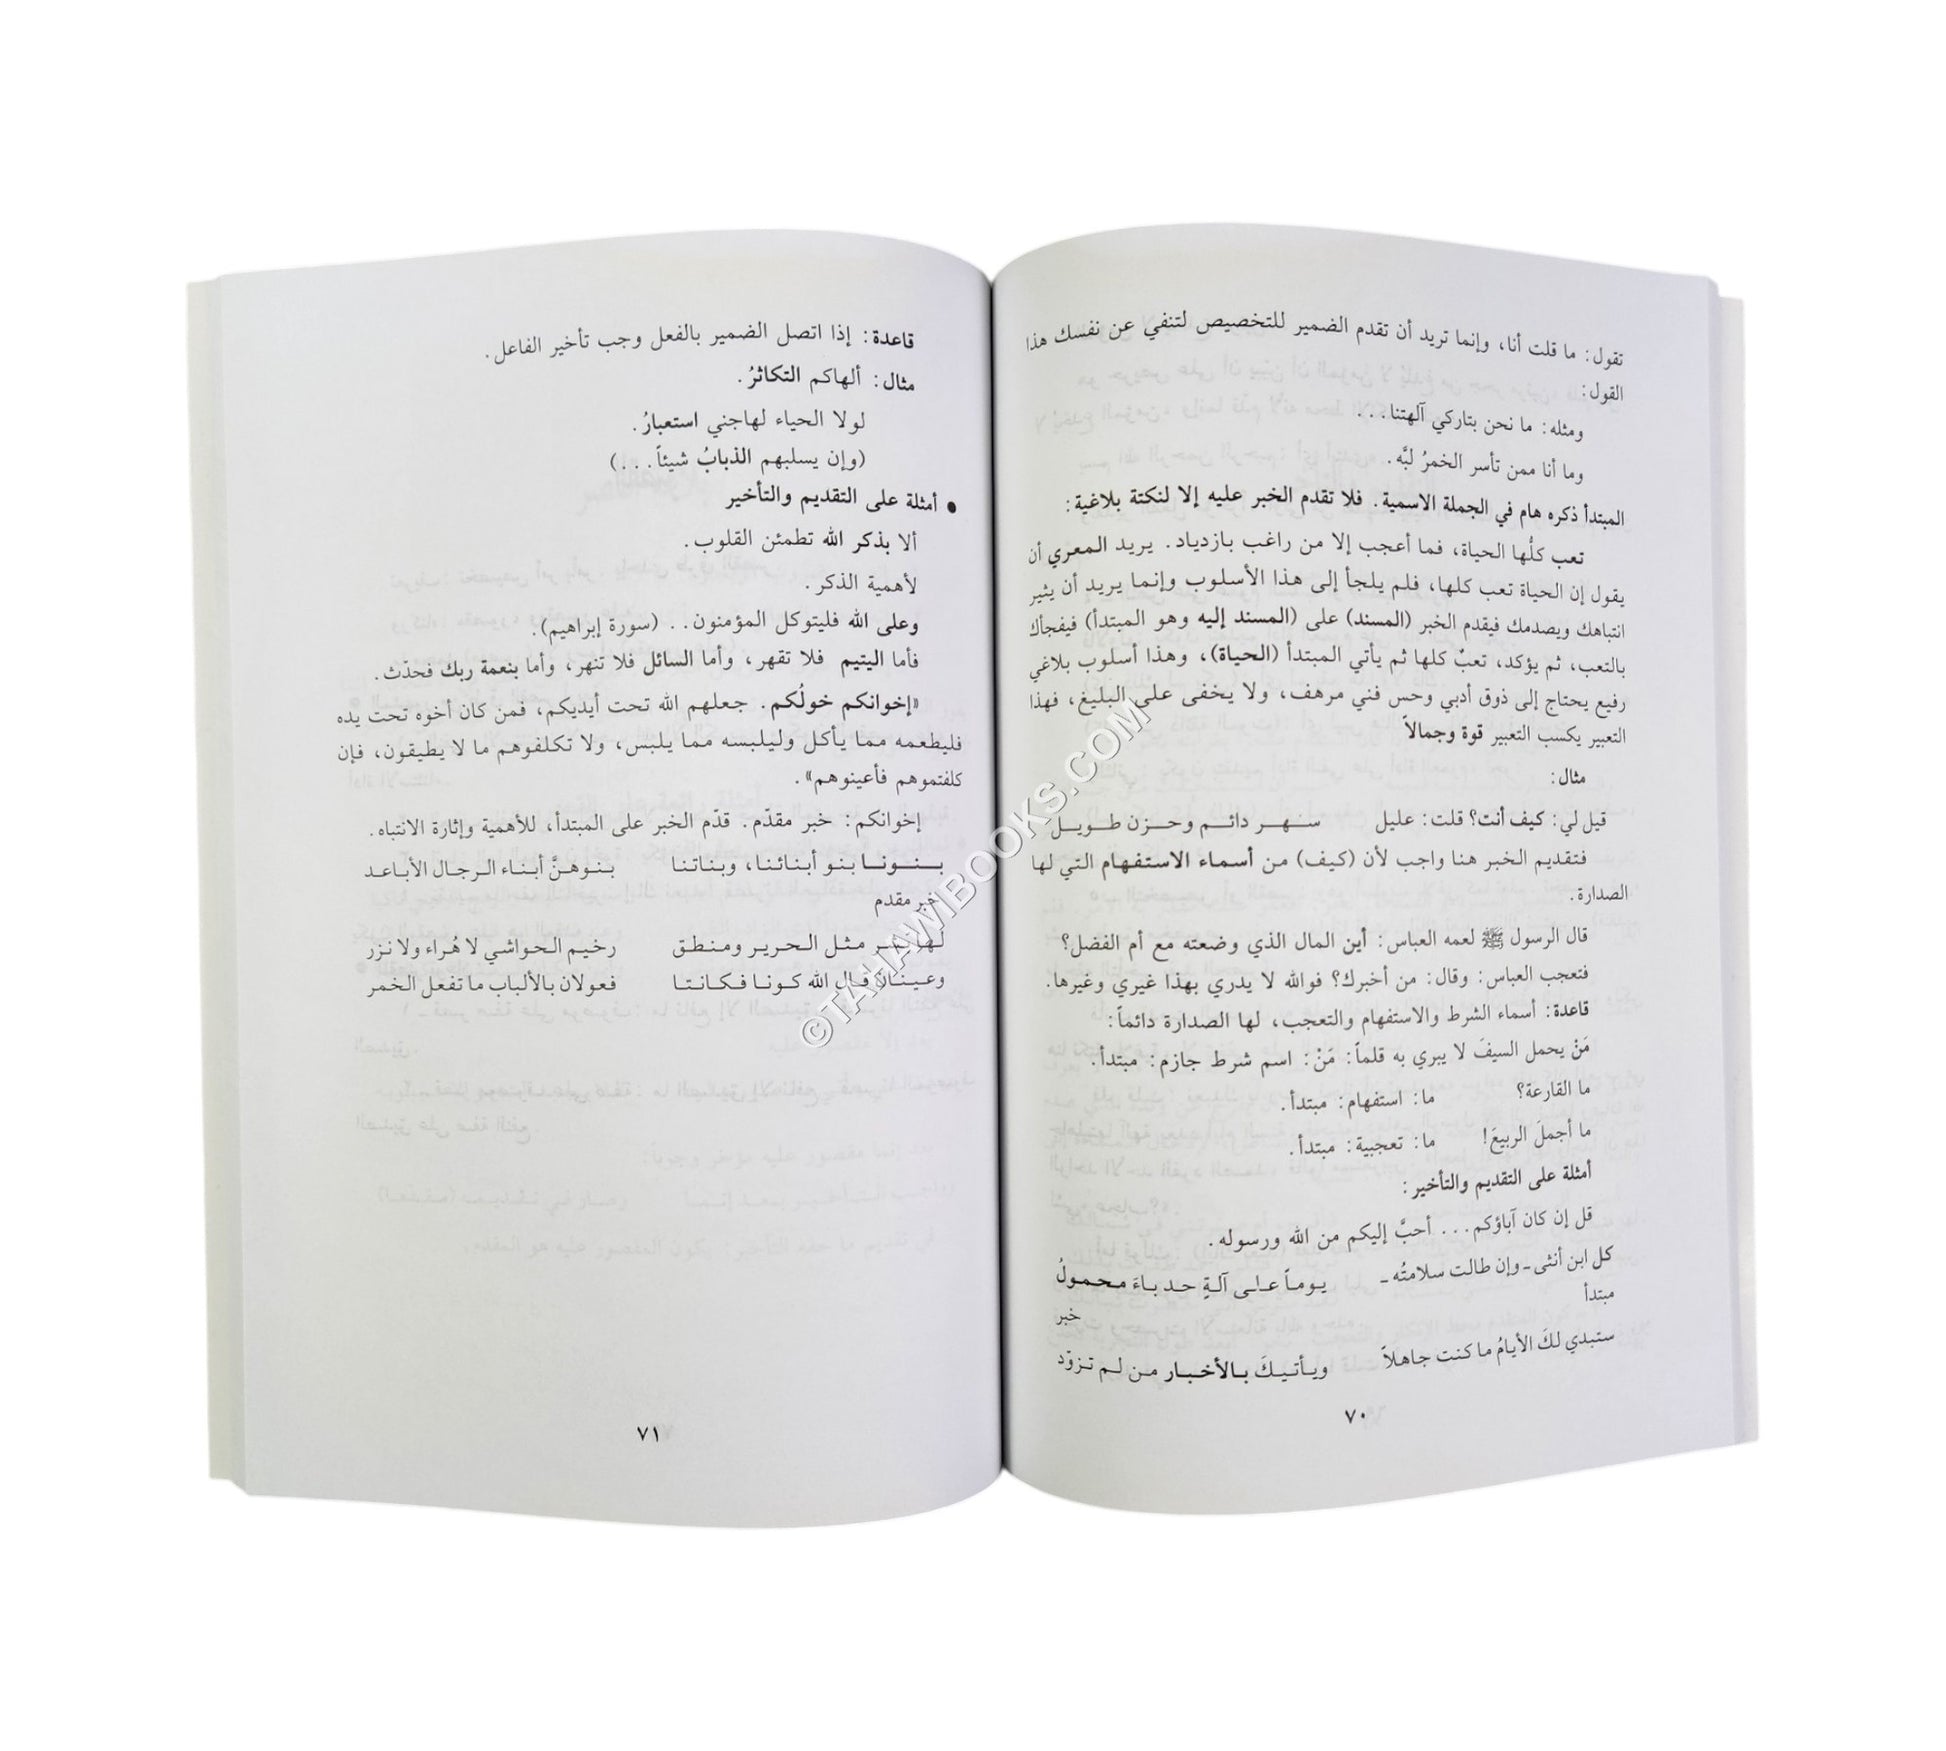 تقول: ما قلت أنا، وإنما تريد أن تقدم الضمير للتخصيص لتنفي عن نفسك هذا
القول:
ومثله: ما نحن بتاركي آلهتنا. . .
وما أنا ممن تأسر الخمرُ لبَّه.
المبتدأ ذكره هام في الجملة الاسمية. فلا تقدم الخبر عليه إلا لنكتة بلاغية:
تعب كلُّها الحياة، فما أعجب إلا من راغب بازدياد. يريد المعري أن
يقول إن الحياة تعب كلها، فلم يلجأ إلى هذا الأسلوب وإنما يريد أن يثير
انتباهك ويصدمك فيقدم الخبر (المسند) على (المسند إليه وهو المبتدأ) فيفجأك
بالتعب، ثم يؤكد، تعبٌ كلها ثم يأتي المبتدأ (الحياة)، وهذا أسلوب بلاغي
رفيع يحتاج إلى ذوق أدبي وحس فني مرهف، ولا يخفى على البليغ، فهذا
التعبير يكسب التعبير قوة وجمالاً
مثال:
قيل لي: كيف أنت؟ قلت: عليل سهر دائم وحزن طويل
فتقديم الخبر هنا واجب لأن (كيف) من أسماء الاستفهام التي لها
الصدارة.
قال الرسول ﷺ لعمه العباس: أين المال الذي وضعته مع أم الفضل؟
فتعجب العباس: وقال: من أخبرك؟ فوالله لا يدري بهذا غيري وغيرها.
قاعدة: أسماء الشرط والاستفهام والتعجب، لها الصدارة دائماً:
مَنْ يحمل السيفَ لا يبري به قلماً: مَنْ: اسم شرط جازم: مبتدأ.
ما القارعة؟ ما: استفهام: مبتدأ.
ما أجملَ الربيعَ! ما: تعجبية: مبتدأ.
أمثلة على التقديم والتأخير:
قل إن كان آباؤكم. . . أحبَّ إليكم من الله ورسوله.
كل ابن أنثى ـ وإن طالت سلامتُه ـ يوماً على آلةٍ حدباءَ محمولُ
مبتدأ خبر
ستبدي لكَ الأيامُ ما كنت جاهلاً ويأتيكَ بالأخبار من لم تزوّد
٧٠
قاعدة: إذا اتصل الضمير بالفعل وجب تأخير الفاعل.
مثال: ألهاكم التكاثرُ.
لولا الحياء لهاجني استعبارُ.
(وإن يسلبهم الذبابُ شيئاً. . .)
• أمثلة على التقديم والتأخير
ألا بذكر الله تطمئن القلوب.
لأهمية الذكر.
وعلى الله فليتوكل المؤمنون. . (سورة إبراهيم).
فأما اليتيم فلا تقهر، وأما السائل فلا تنهر، وأما بنعمة ربك فحدّث.
«إخوانكم خولُكم. جعلهم الله تحت أيديكم، فمن كان أخوه تحت يده
فليطعمه مما يأكل وليلبسه مما يلبس، ولا تكلفوهم ما لا يطيقون، فإن
كلفتموهم فأعينوهم».
إخوانكم: خبر مقدّم. قدّم الخبر على المبتدأ، للأهمية وإثارة الانتباه.
بنونا بنو أبنائنا، وبناتنا بنوهنَّ أبناء الرجال الأباعد
خبر مقدم
لها مثل الحرير ومنطق رخيم الحواشي لا هُراء ولا نزر
وعينان قال الله كونا فكانتا فعولان بالألباب ما تفعل الخمر
٧١
©TAHAWIBOOKS.COM